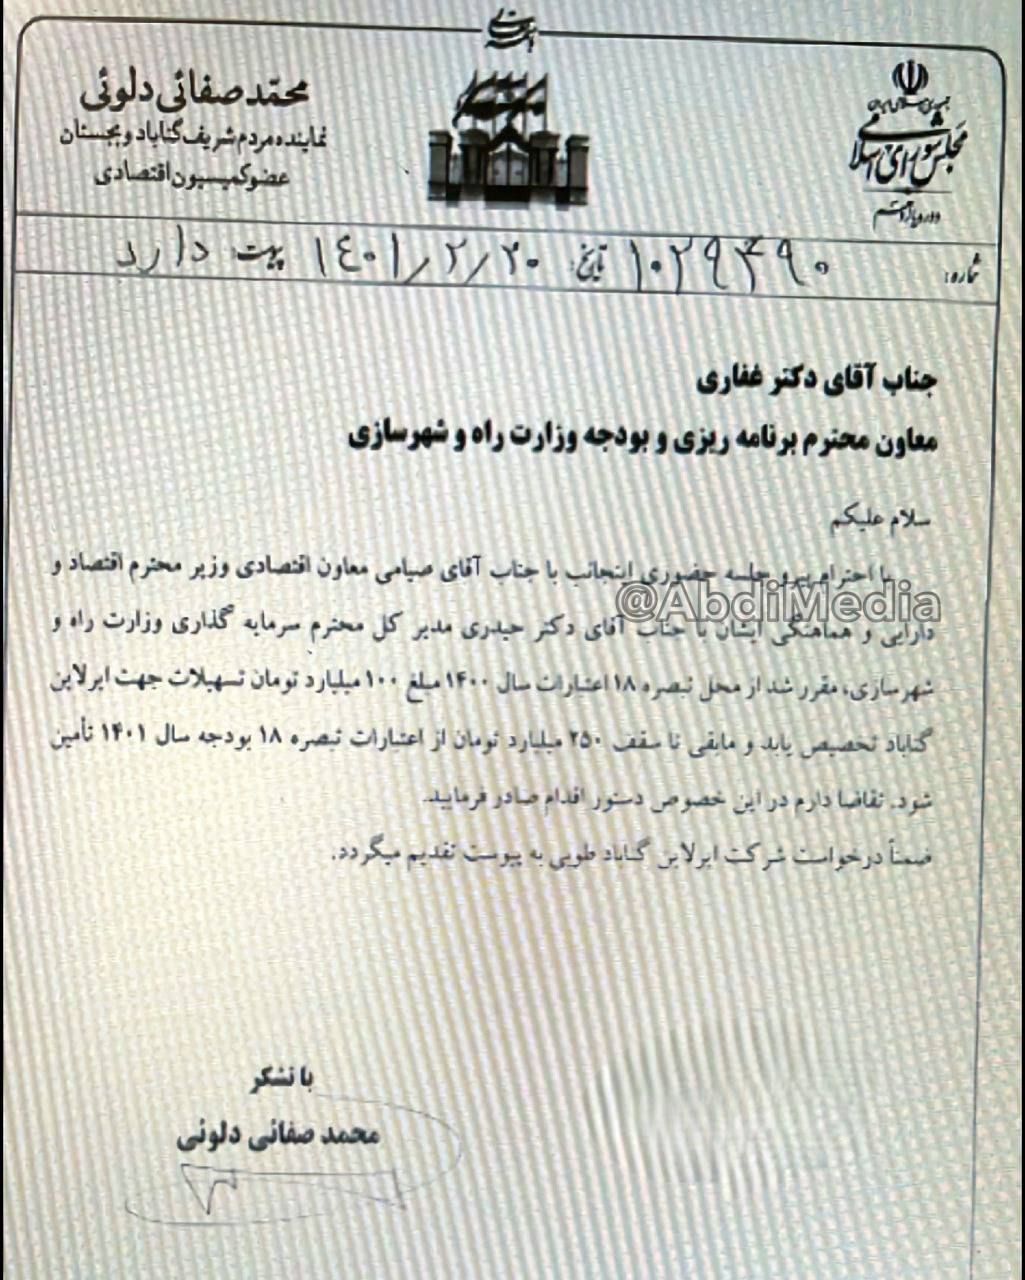 بسمه تعالی
جمهوری اسلامی ایران
مجلس شورای اسلامی
دوره یازدهم
محمّد صفائی دلوئی
نماینده مردم شریف گناباد و بجستان
عضو کمیسیون اقتصادی
شماره: تاریخ: ۱۴۰۱/۲/۲۰ پیوست دارد
جناب آقای دکتر غفاری
معاون محترم برنامه ریزی و بودجه وزارت راه و شهرسازی
سلام علیکم
با احترام پیرو جلسه حضوری اینجانب با جناب آقای صیامی معاون اقتصادی وزیر محترم اقتصاد و
@AbdiMedia
دارایی و هماهنگی ایشان با جناب آقای دکتر حیدری مدیر کل محترم سرمایه گذاری وزارت راه و
شهرسازی، مقرر شد از محل تبصره ۱۸ اعتبارات سال ۱۴۰۰ مبلغ ۱۰۰ میلیارد تومان تسهیلات جهت ایرلاین
گناباد تخصیص یابد و مابقی تا سقف ۲۵۰ میلیارد تومان از اعتبارات تبصره ۱۸ بودجه سال ۱۴۰۱ تأمین
شود. تقاضا دارم در این خصوص دستور اقدام صادر فرمایید.
ضمناً درخواست شرکت ایرلاین گناباد طوبی به پیوست تقدیم میگردد.
با تشکر
محمد صفائی دلوئی